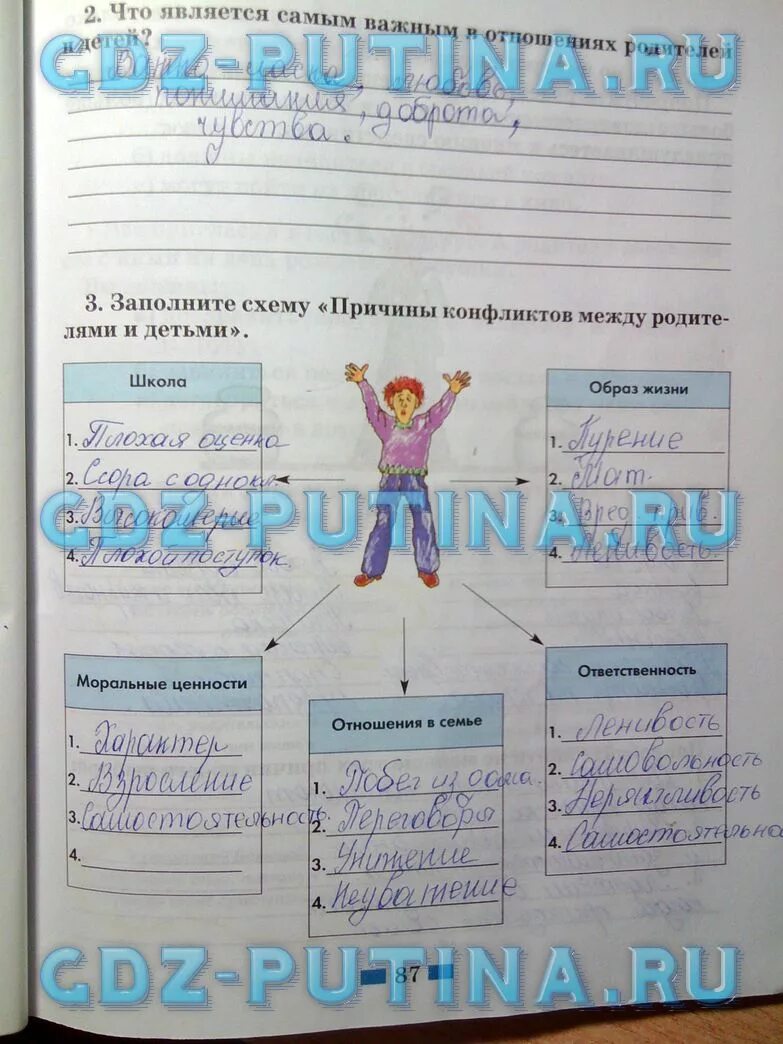 2. Что является самым важным в отношениях родителей
и детей?
GDZ-PUTINA.RU
любовь,
понимания, доброта,
чувства.
3. Заполните схему «Причины конфликтов между родите-
лями и детьми».
Школа
1. Плохая оценка
2. Ссора с однокл.
3. Высокомерие
4. Плохой поступок.
Образ жизни
1. Курение
2. Мат.
3.
4. Ленивость.
GDZ-PUTINA.RU
Моральные ценности
1. Характер
2. Взросление
3. Самостоятельность.
4.
Отношения в семье
1. Побег из дома.
2. Переговоры
3. Унижение
4. Неуважение
Ответственность
1. Ленивость
2. Самовольность
3. Неряшливость
4. Самостоятельно
87
GDZ-PUTINA.RU